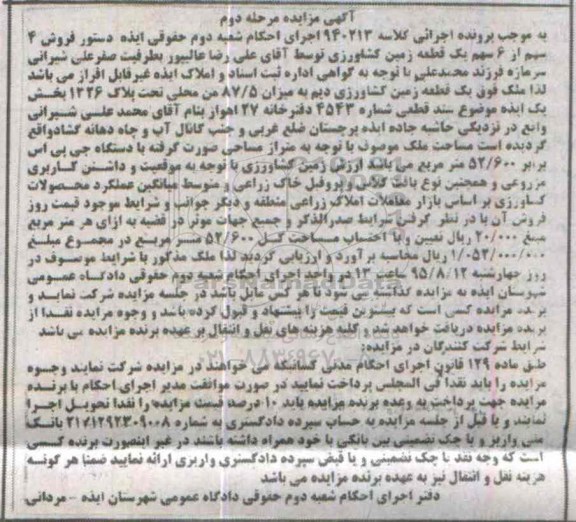 آگهی مزایده مرحله دوم
به موجب پرونده اجرائی کلاسه ۹۴۰۲۱۳ اجرای احکام شعبه دوم حقوقی ایذه دستور فروش ۴
سهم از ۶ سهم یک قطعه زمین کشاورزی توسط آقای علی رضا عالیپور بطرفیت صفرعلی شیرانی
سرمازه فرزند محمدعلی با توجه به گواهی اداره ثبت اسناد و املاک ایذه غیرقابل افراز می باشد
لذا ملک فوق یک قطعه زمین کشاورزی دیم به میزان ۸۷/۵ من محلی تحت پلاک ۱۳۲۶ بخش
یک ایذه موضوع سند قطعی شماره ۴۵۴۳ دفترخانه ۲۷ اهواز بنام آقای محمد علی شیرانی
واقع در نزدیکی حاشیه جاده ایذه پرچستان ضلع غربی و جنب کانال آب و چاه دهانه گشادواقع
گردیده است مساحت ملک موصوف با توجه به متراژ مساحی صورت گرفته با دستگاه جی پی اس
برابر ۵۲/۶۰۰ متر مربع می باشد ارزش زمین کشاورزی با توجه به موقعیت و داشتن کاربری
مزروعی و همچنین نوع بافت کلاس وپروفیل خاک زراعی و متوسط میانگین عملکرد محصولات
کشاورزی بر اساس بازار معاملات املاک زراعی منطقه و دیگر جوانب و شرایط موجود قیمت روز
فروش آن با در نظر گرفتن شرایط صدرالذکر و جمیع جهات موثر در قضیه به ازای هر متر مربع
مبلغ ۲۰/۰۰۰ ریال تعیین و با احتساب مساحت کل ۵۲/۶۰۰ متر مربع در مجموع مبلغ
۱/۰۵۲/۰۰۰/۰۰۰ ریال محاسبه برآورد و ارزیابی گردید لذا ملک مذکور با شرایط موصوف در
روز چهارشنبه ۹۵/۸/۱۲ ساعت ۱۲ در واحد اجرای احکام شعبه دوم حقوقی دادگاه عمومی
شهرستان ایذه به مزایده گذاشته می شود تا هر کس مایل باشد در جلسه مزایده شرکت نماید و
برنده مزایده کسی است که بیشترین قیمت را پیشنهاد و قبول کرده باشد و وجوه مزایده نقدا از
برنده مزایده دریافت خواهد شد و کلیه هزینه های نقل و انتقال بر عهده برنده مزایده می باشد
شرایط شرکت کنندگان در مزایده:
طبق ماده ۱۲۹ قانون اجرای احکام مدنی کسانیکه می خواهند در مزایده شرکت نمایند وجوه
مزایده را باید نقدا فی المجلس پرداخت نمایند در صورت موافقت مدیر اجرای احکام با برنده
مزایده جهت پرداخت به وعده برنده مزایده باید ۱۰ درصد قیمت مزایده را نقدا تحویل اجرا
نمایند و یا قبل از جلسه مزایده به حساب سپرده دادگستری به شماره ۲۱۷۱۲۹۲۳۰۹۰۰۸ بانک
ملی واریز و یا چک تضمینی بین بانکی با خود همراه داشته باشند در غیر اینصورت برنده کسی
است که وجه نقد یا چک تضمینی و یا قبض سپرده دادگستری واریزی ارائه نمایید ضمنا هر گونه
هزینه نقل و انتقال نیز به عهده برنده مزایده می باشد
دفتر اجرای احکام شعبه دوم حقوقی دادگاه عمومی شهرستان ایذه - مردانی